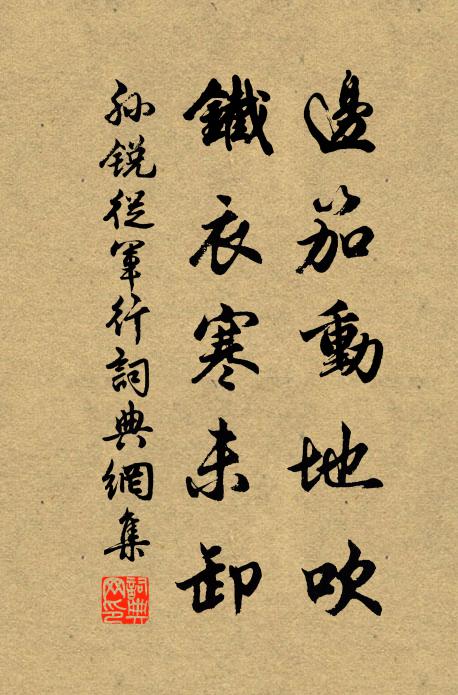 邊笳動地吹
鐵衣寒未卸
孙銳從軍行詞典網集
詞典
网印